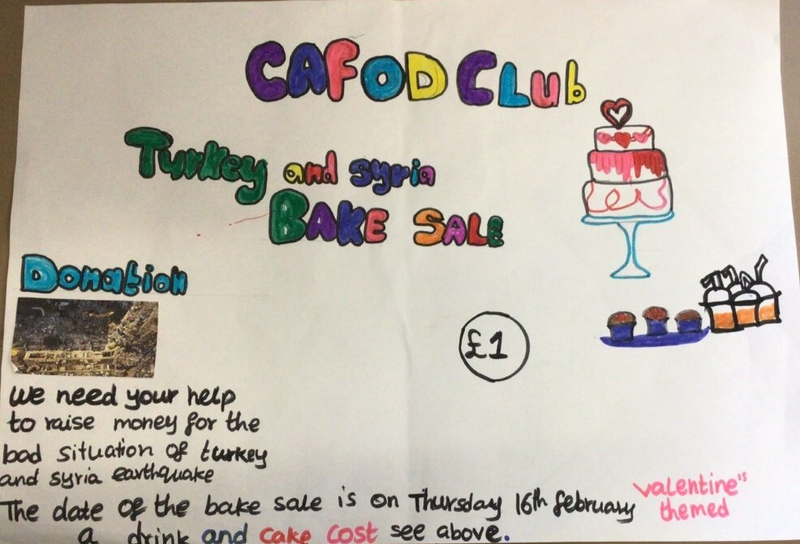 CAFOD CLub
Turkey and syria
BAKE SALE
Donation
£1
we need your help
to raise money for the
bad situation of turkey
and syria earthquake
The date of the bake sale is on Thursday 16th february valentine's themed
a drink and cake cost see above.